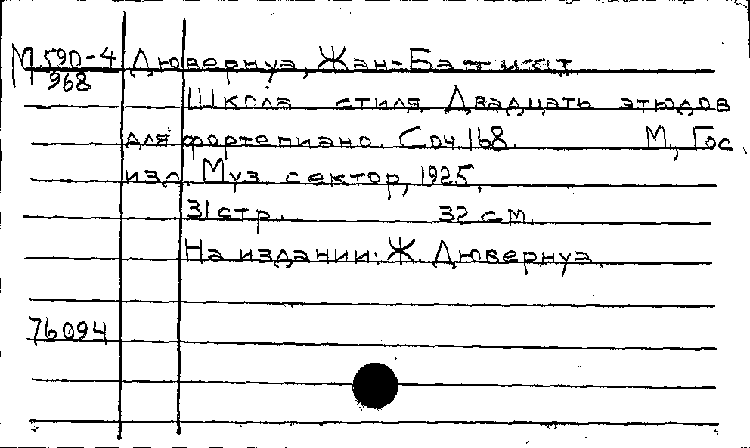 М 590-4 Дювернуа, Жан-Батист
968
Школа стиля Двадцать этюдов
для фортепиано. Соч 168. М, Гос.
изд. Муз. сектор, 1925.
31 стр. 32 см.
На издании: Ж. Дювернуа.
76094